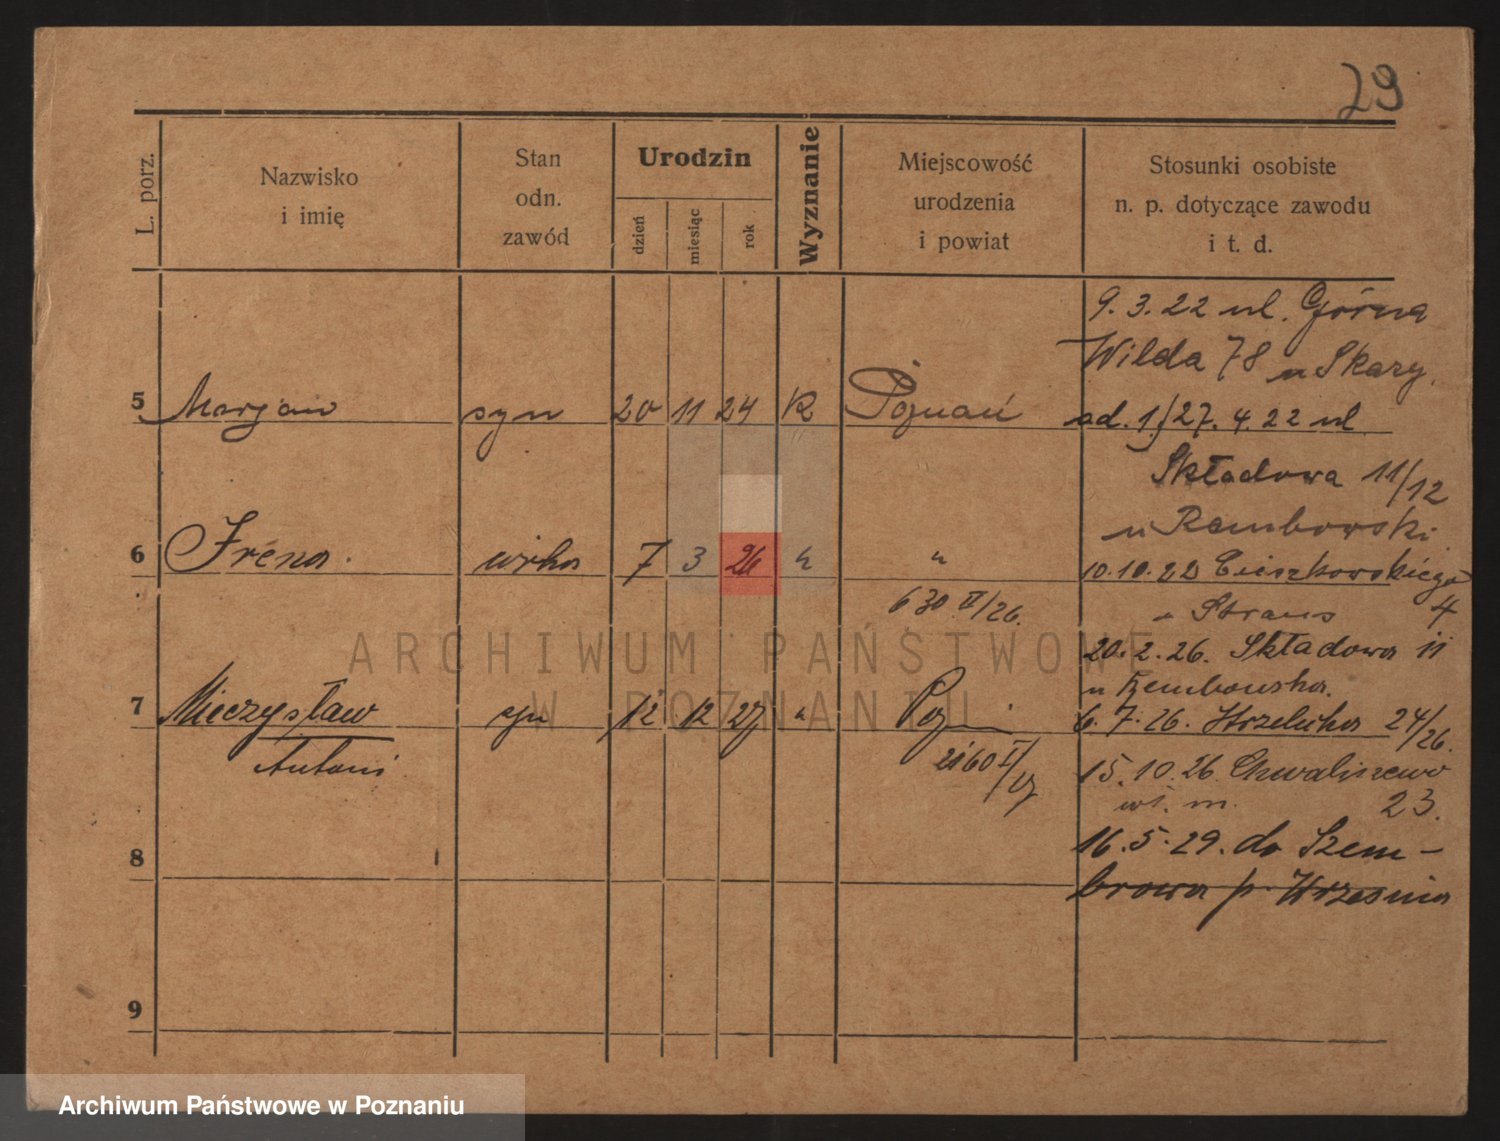 29
L. porz.
Nazwisko
i imię
Stan
odn.
zawód
Urodzin
dzień
miesiąc
rok
Wyznanie
Miejscowość
urodzenia
i powiat
Stosunki osobiste
n. p. dotyczące zawodu
i t. d.
9. 3. 22 ul. Górna
Wilda 78 u Skary.
5 Marjan syn 20 11 24 K Poznań
ad. 1./27. 4. 22 ul
Składowa 11/12
u Rembowski.
6 Irena. 7 3 26 " "
10.10.22 Cieszkowskiego
4
630 II/26.
20. 2. 26. Składowa 11
u Rembowska.
7 Mieczysław syn 12 12 27 "
6. 7. 26. Strzelecka 24/26.
Antoni
2160 I/27
15. 10. 26. Chwaliszewo
wł. m. 23.
16. 5. 29. do Szem-
8
browa p. Września
9
ARCHIWUM PAŃSTWOWE
W POZNANIU
Archiwum Państwowe w Poznaniu